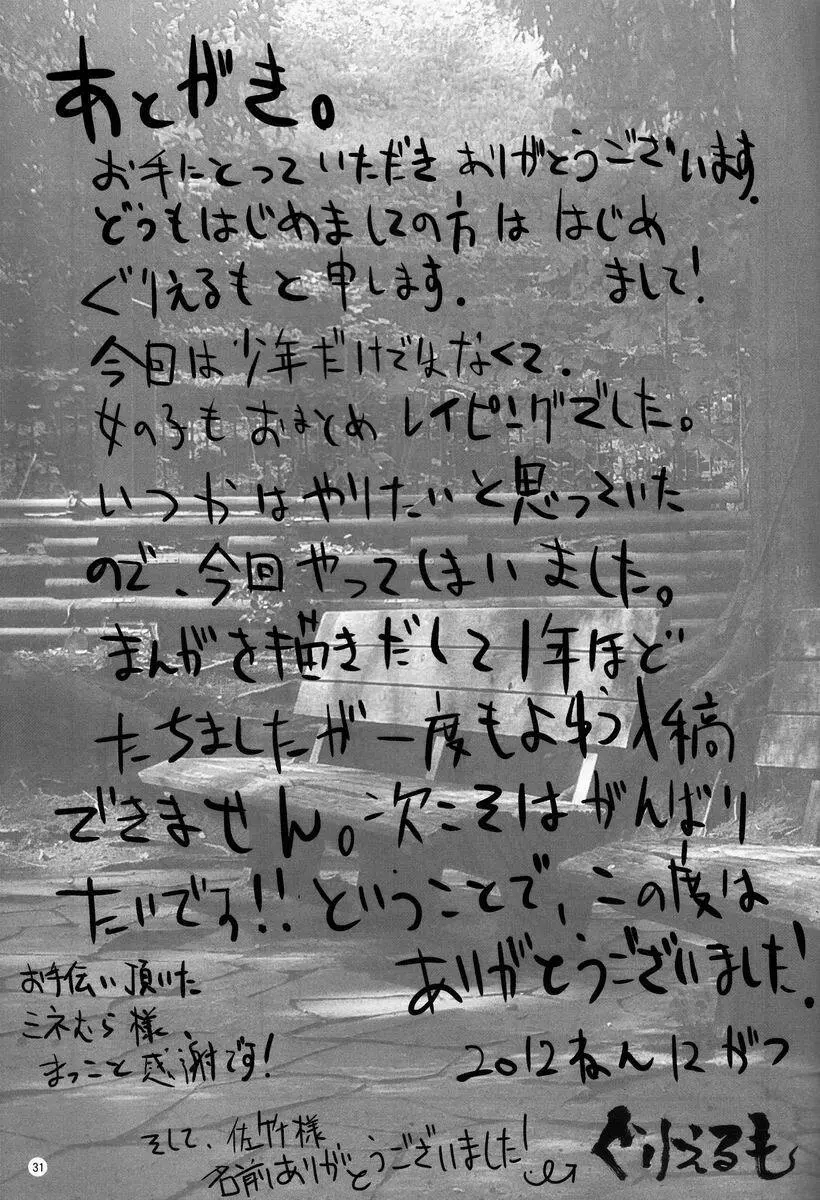 あとがき。
お手にとって いただき ありがとうございます。
どうもはじめましての方は はじめ
まして!
ぐりえるもと申します。
今回は少年だけではなくて、
女の子もおまとめ レイピングでした。
いつかはやりたいと思っていた
ので、今回やってしまいました。
まんがを描きだして1年ほど
たちましたが一度もよゆう入稿
できません。次こそはがんばり
たいです!!ということで、この度は
ありがとうございました!
お手伝い頂いた
ミネむら様、
まっこと感謝です!
2012ねん12がつ
そして、佐竹様
名前ありがとうございました!
ぐりえるも
31